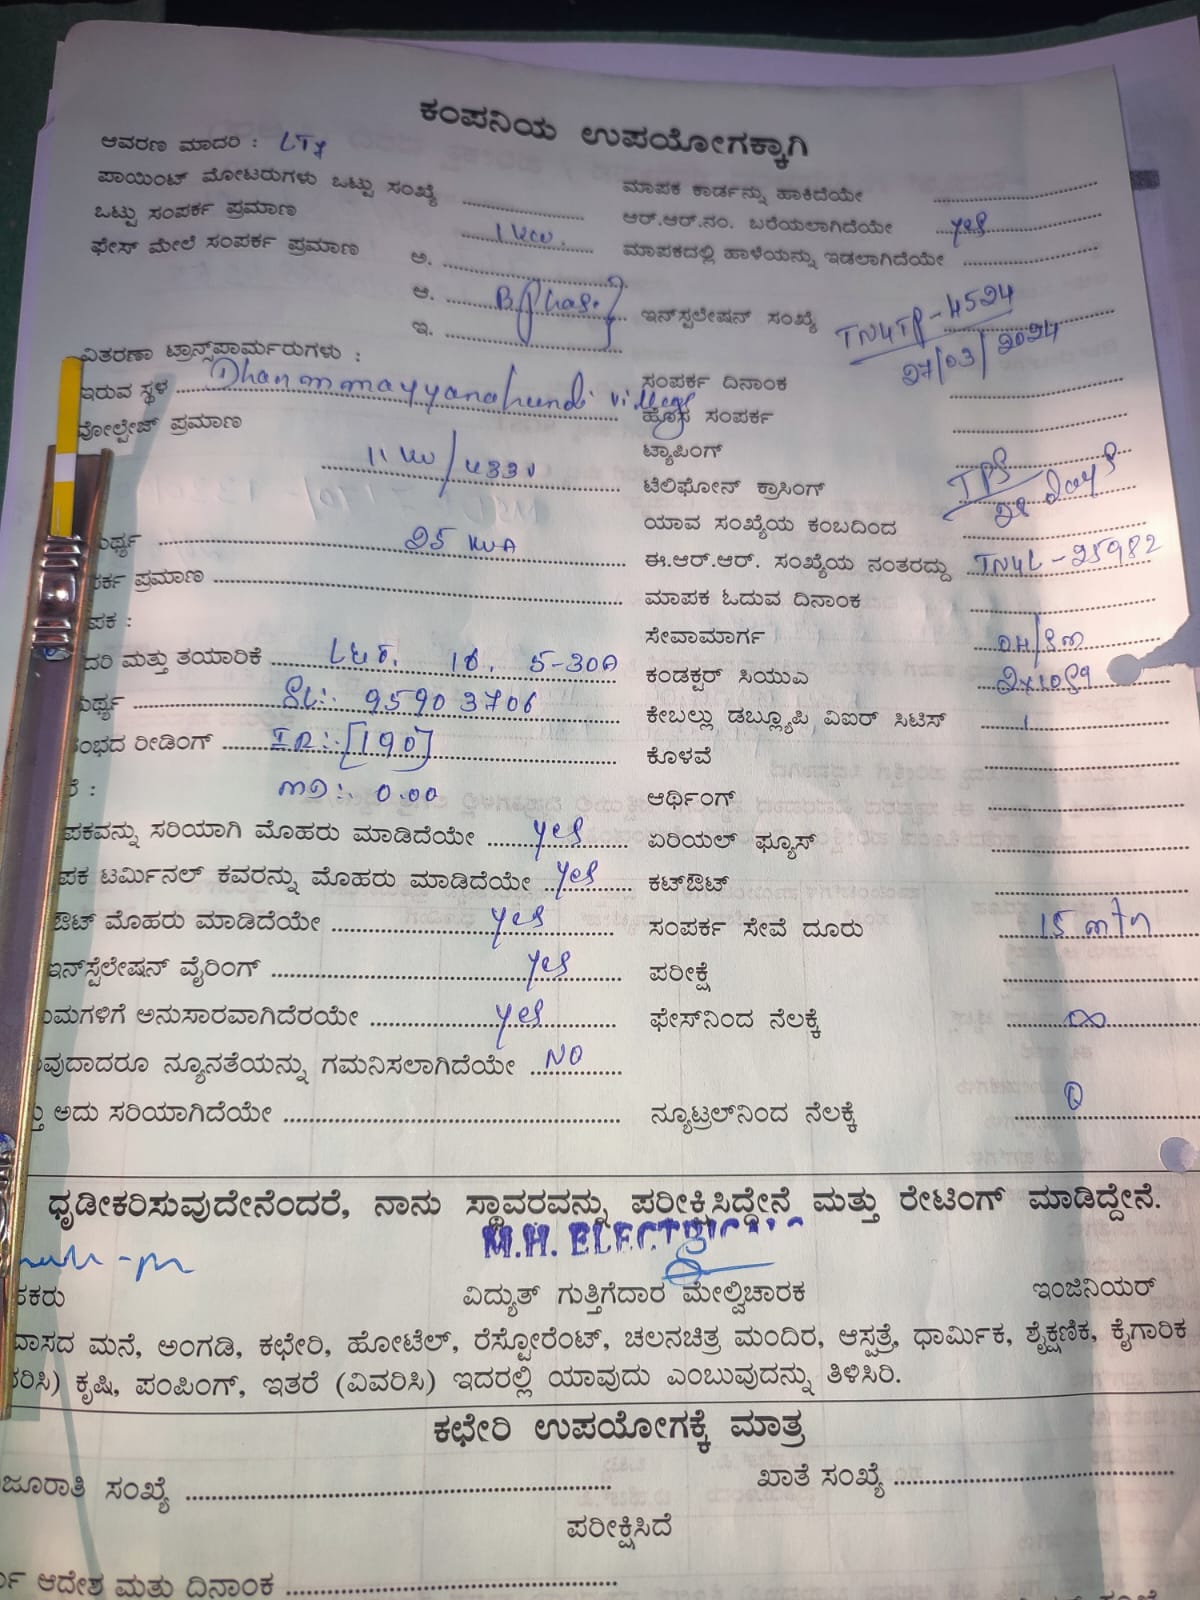 ಕಂಪನಿಯ ಉಪಯೋಗಕ್ಕಾಗಿ
ಆವರಣ ಮಾದರಿ : LT7
ಪಾಯಿಂಟ್ ಮೋಟರುಗಳು ಒಟ್ಟು ಸಂಖ್ಯೆ ಮಾಪಕ ಕಾರ್ಡನ್ನು ಹಾಕಿದೆಯೇ
ಒಟ್ಟು ಸಂಪರ್ಕ ಪ್ರಮಾಣ 1 KW. ಆರ್.ಆರ್.ನಂ. ಬರೆಯಲಾಗಿದೆಯೇ yes
ಫೇಸ್ ಮೇಲೆ ಸಂಪರ್ಕ ಪ್ರಮಾಣ ಅ. ಮಾಪಕದಲ್ಲಿ ಹಾಳೆಯನ್ನು ಇಡಲಾಗಿದೆಯೇ
ಆ. B phase ಇನ್‌ಸ್ಟಲೇಷನ್ ಸಂಖ್ಯೆ TN4TP-4524
ಇ. 27/03/2024
ವಿತರಣಾ ಟ್ರಾನ್ಸ್‌ಫಾರ್ಮರುಗಳು :
ಇರುವ ಸ್ಥಳ Dhanmmayyanahundi village ಸಂಪರ್ಕ ದಿನಾಂಕ
ವೋಲ್ಟೇಜ್ ಪ್ರಮಾಣ ಹೊಸ ಸಂಪರ್ಕ
11 KV/433V ಟ್ಯಾಪಿಂಗ್
ಟೆಲಿಫೋನ್ ಕ್ರಾಸಿಂಗ್ TPS/28 days
ಯಾವ ಸಂಖ್ಯೆಯ ಕಂಬದಿಂದ
ರ್ಥ್ಯ 25 KVA ಈ.ಆರ್.ಆರ್. ಸಂಖ್ಯೆಯ ನಂತರದ್ದು TN4L-25982
ರ್ಕ ಪ್ರಮಾಣ ಮಾಪಕ ಓದುವ ದಿನಾಂಕ
ಪಕ : ಸೇವಾಮಾರ್ಗ OH/
ದರಿ ಮತ್ತು ತಯಾರಿಕೆ L&T. 1Ø. 5-30A ಕಂಡಕ್ಟರ್ ಸಿಯುವ
ರ್ಥ್ಯ SL:- 95903706 ಕೇಬಲ್ಲು ಡಬ್ಲ್ಯೂಪಿ ವಿಐರ್ ಸಿಟಿಸ್
ಂಭದ ರೀಡಿಂಗ್ IR:-[190] ಕೊಳವೆ
MD:- 0.00 ಆರ್ಥಿಂಗ್
ಪಕವನ್ನು ಸರಿಯಾಗಿ ಮೊಹರು ಮಾಡಿದೆಯೇ yes ಏರಿಯಲ್ ಫ್ಯೂಸ್
ಪಕ ಟರ್ಮಿನಲ್ ಕವರನ್ನು ಮೊಹರು ಮಾಡಿದೆಯೇ yes ಕಟ್‌ಔಟ್
ಔಟ್ ಮೊಹರು ಮಾಡಿದೆಯೇ yes ಸಂಪರ್ಕ ಸೇವೆ ದೂರು 15 mtr
ಇನ್‌ಸ್ಟೆಲೇಷನ್ ವೈರಿಂಗ್ yes ಪರೀಕ್ಷೆ
ಯಮಗಳಿಗೆ ಅನುಸಾರವಾಗಿದೆರಯೇ yes ಫೇಸ್‌ನಿಂದ ನೆಲಕ್ಕೆ ∞
ವುದಾದರೂ ನ್ಯೂನತೆಯನ್ನು ಗಮನಿಸಲಾಗಿದೆಯೇ NO
ತ್ತು ಅದು ಸರಿಯಾಗಿದೆಯೇ ನ್ಯೂಟ್ರಲ್‌ನಿಂದ ನೆಲಕ್ಕೆ 0
ಧೃಡೀಕರಿಸುವುದೇನೆಂದರೆ, ನಾನು ಸ್ಥಾವರವನ್ನು ಪರೀಕ್ಷಿಸಿದ್ದೇನೆ ಮತ್ತು ರೇಟಿಂಗ್ ಮಾಡಿದ್ದೇನೆ.
M.H. ELECTRICALS
ಕರು ವಿದ್ಯುತ್ ಗುತ್ತಿಗೆದಾರ ಮೇಲ್ವಿಚಾರಕ ಇಂಜಿನಿಯರ್
ವಾಸದ ಮನೆ, ಅಂಗಡಿ, ಕಛೇರಿ, ಹೋಟೆಲ್, ರೆಸ್ಟೋರೆಂಟ್, ಚಲನಚಿತ್ರ ಮಂದಿರ, ಆಸ್ಪತ್ರೆ, ಧಾರ್ಮಿಕ, ಶೈಕ್ಷಣಿಕ, ಕೈಗಾರಿಕ
ರಿಸಿ) ಕೃಷಿ, ಪಂಪಿಂಗ್, ಇತರೆ (ವಿವರಿಸಿ) ಇದರಲ್ಲಿ ಯಾವುದು ಎಂಬುವುದನ್ನು ತಿಳಿಸಿರಿ.
ಕಛೇರಿ ಉಪಯೋಗಕ್ಕೆ ಮಾತ್ರ
ಜೂರಾತಿ ಸಂಖ್ಯೆ ಖಾತೆ ಸಂಖ್ಯೆ
ಪರೀಕ್ಷಿಸಿದೆ
ಆದೇಶ ಮತು ದಿನಾಂಕ